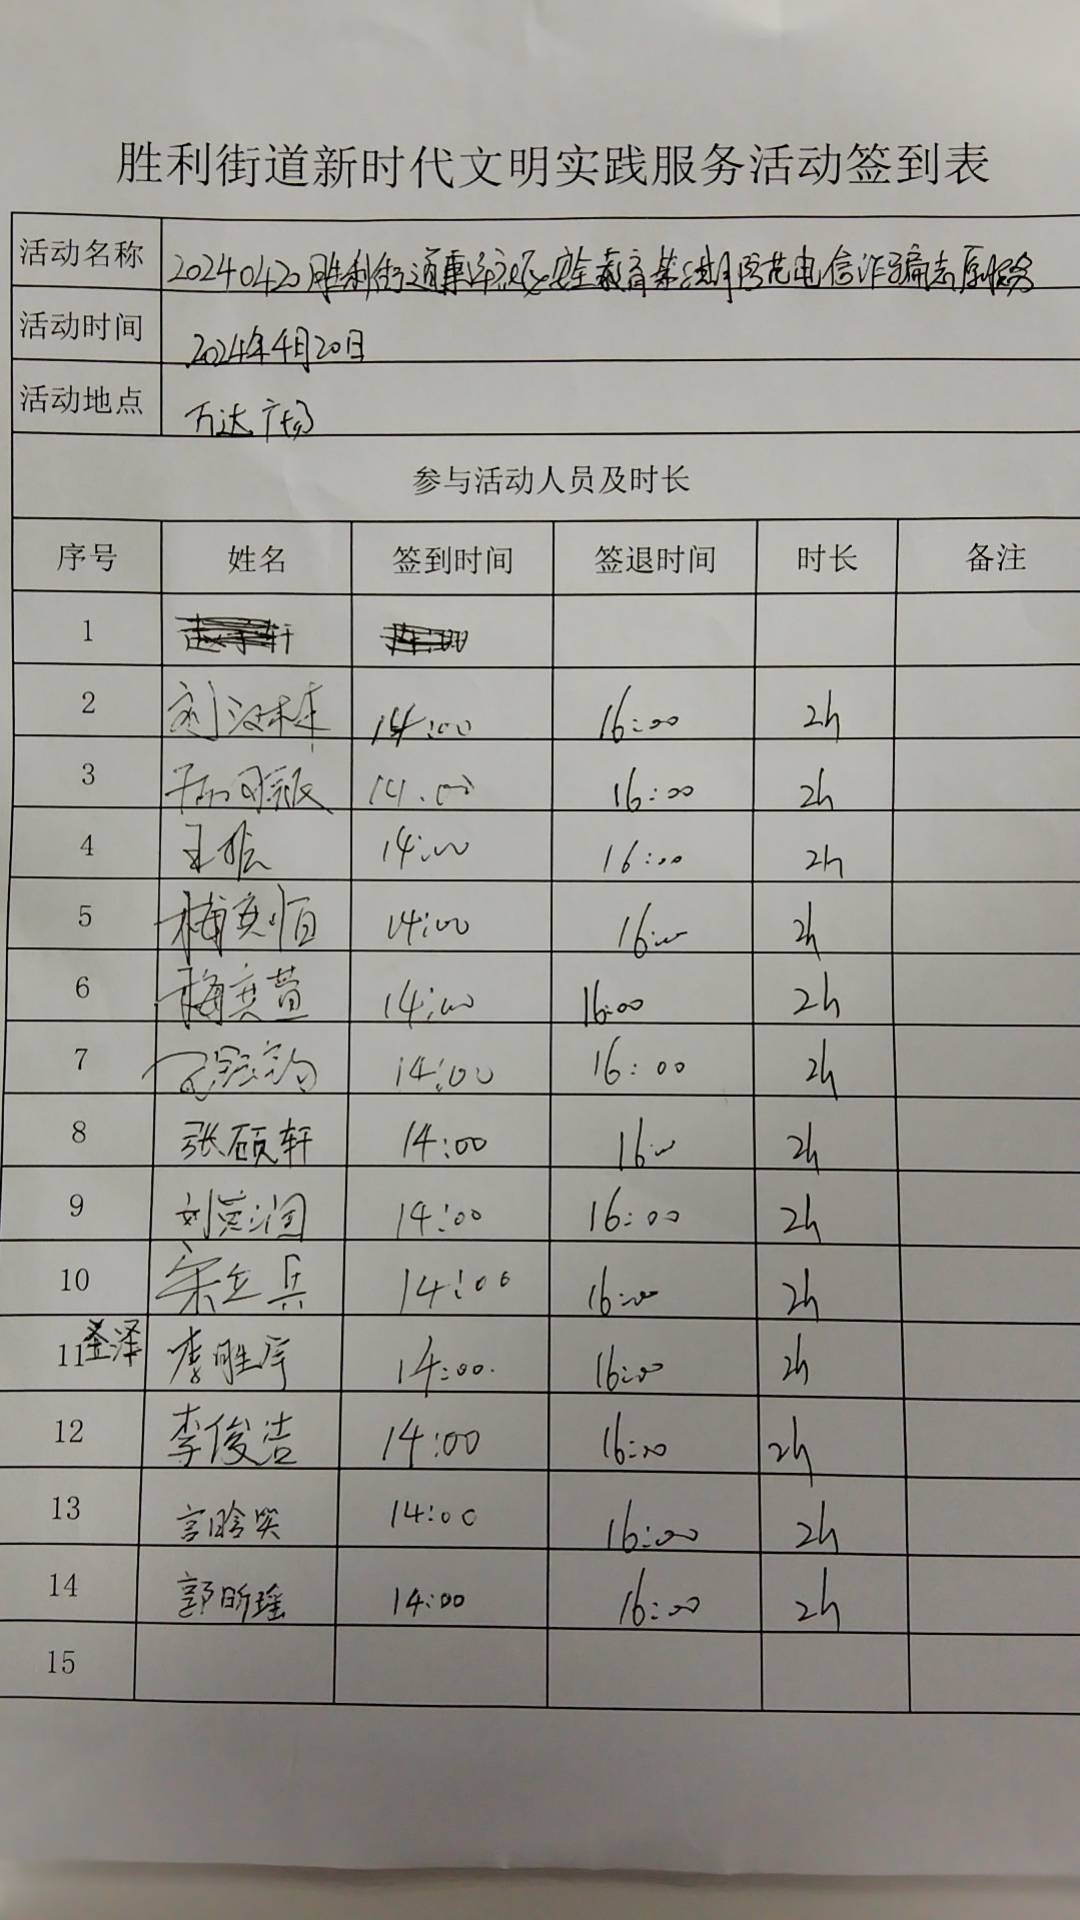 胜利街道新时代文明实践服务活动签到表
活动名称 20240420胜利街道 安全教育 防范电信诈骗志愿服务
活动时间 2024年4月20日
活动地点 万达广场
参与活动人员及时长
序号 姓名 签到时间 签退时间 时长 备注
1
2 刘汉林 14:00 16:00 2h
3 14:00 16:00 2h
4 王 14:00 16:00 2h
5 梅奕恒 14:00 16:00 2h
6 梅奕萱 14:00 16:00 2h
7 14:00 16:00 2h
8 张硕轩 14:00 16:00 2h
9 刘奕润 14:00 16:00 2h
10 宋立兵 14:00 16:00 2h
11 李胜宇 14:00 16:00 2h
12 李俊洁 14:00 16:00 2h
13 14:00 16:00 2h
14 郭昕瑶 14:00 16:00 2h
15